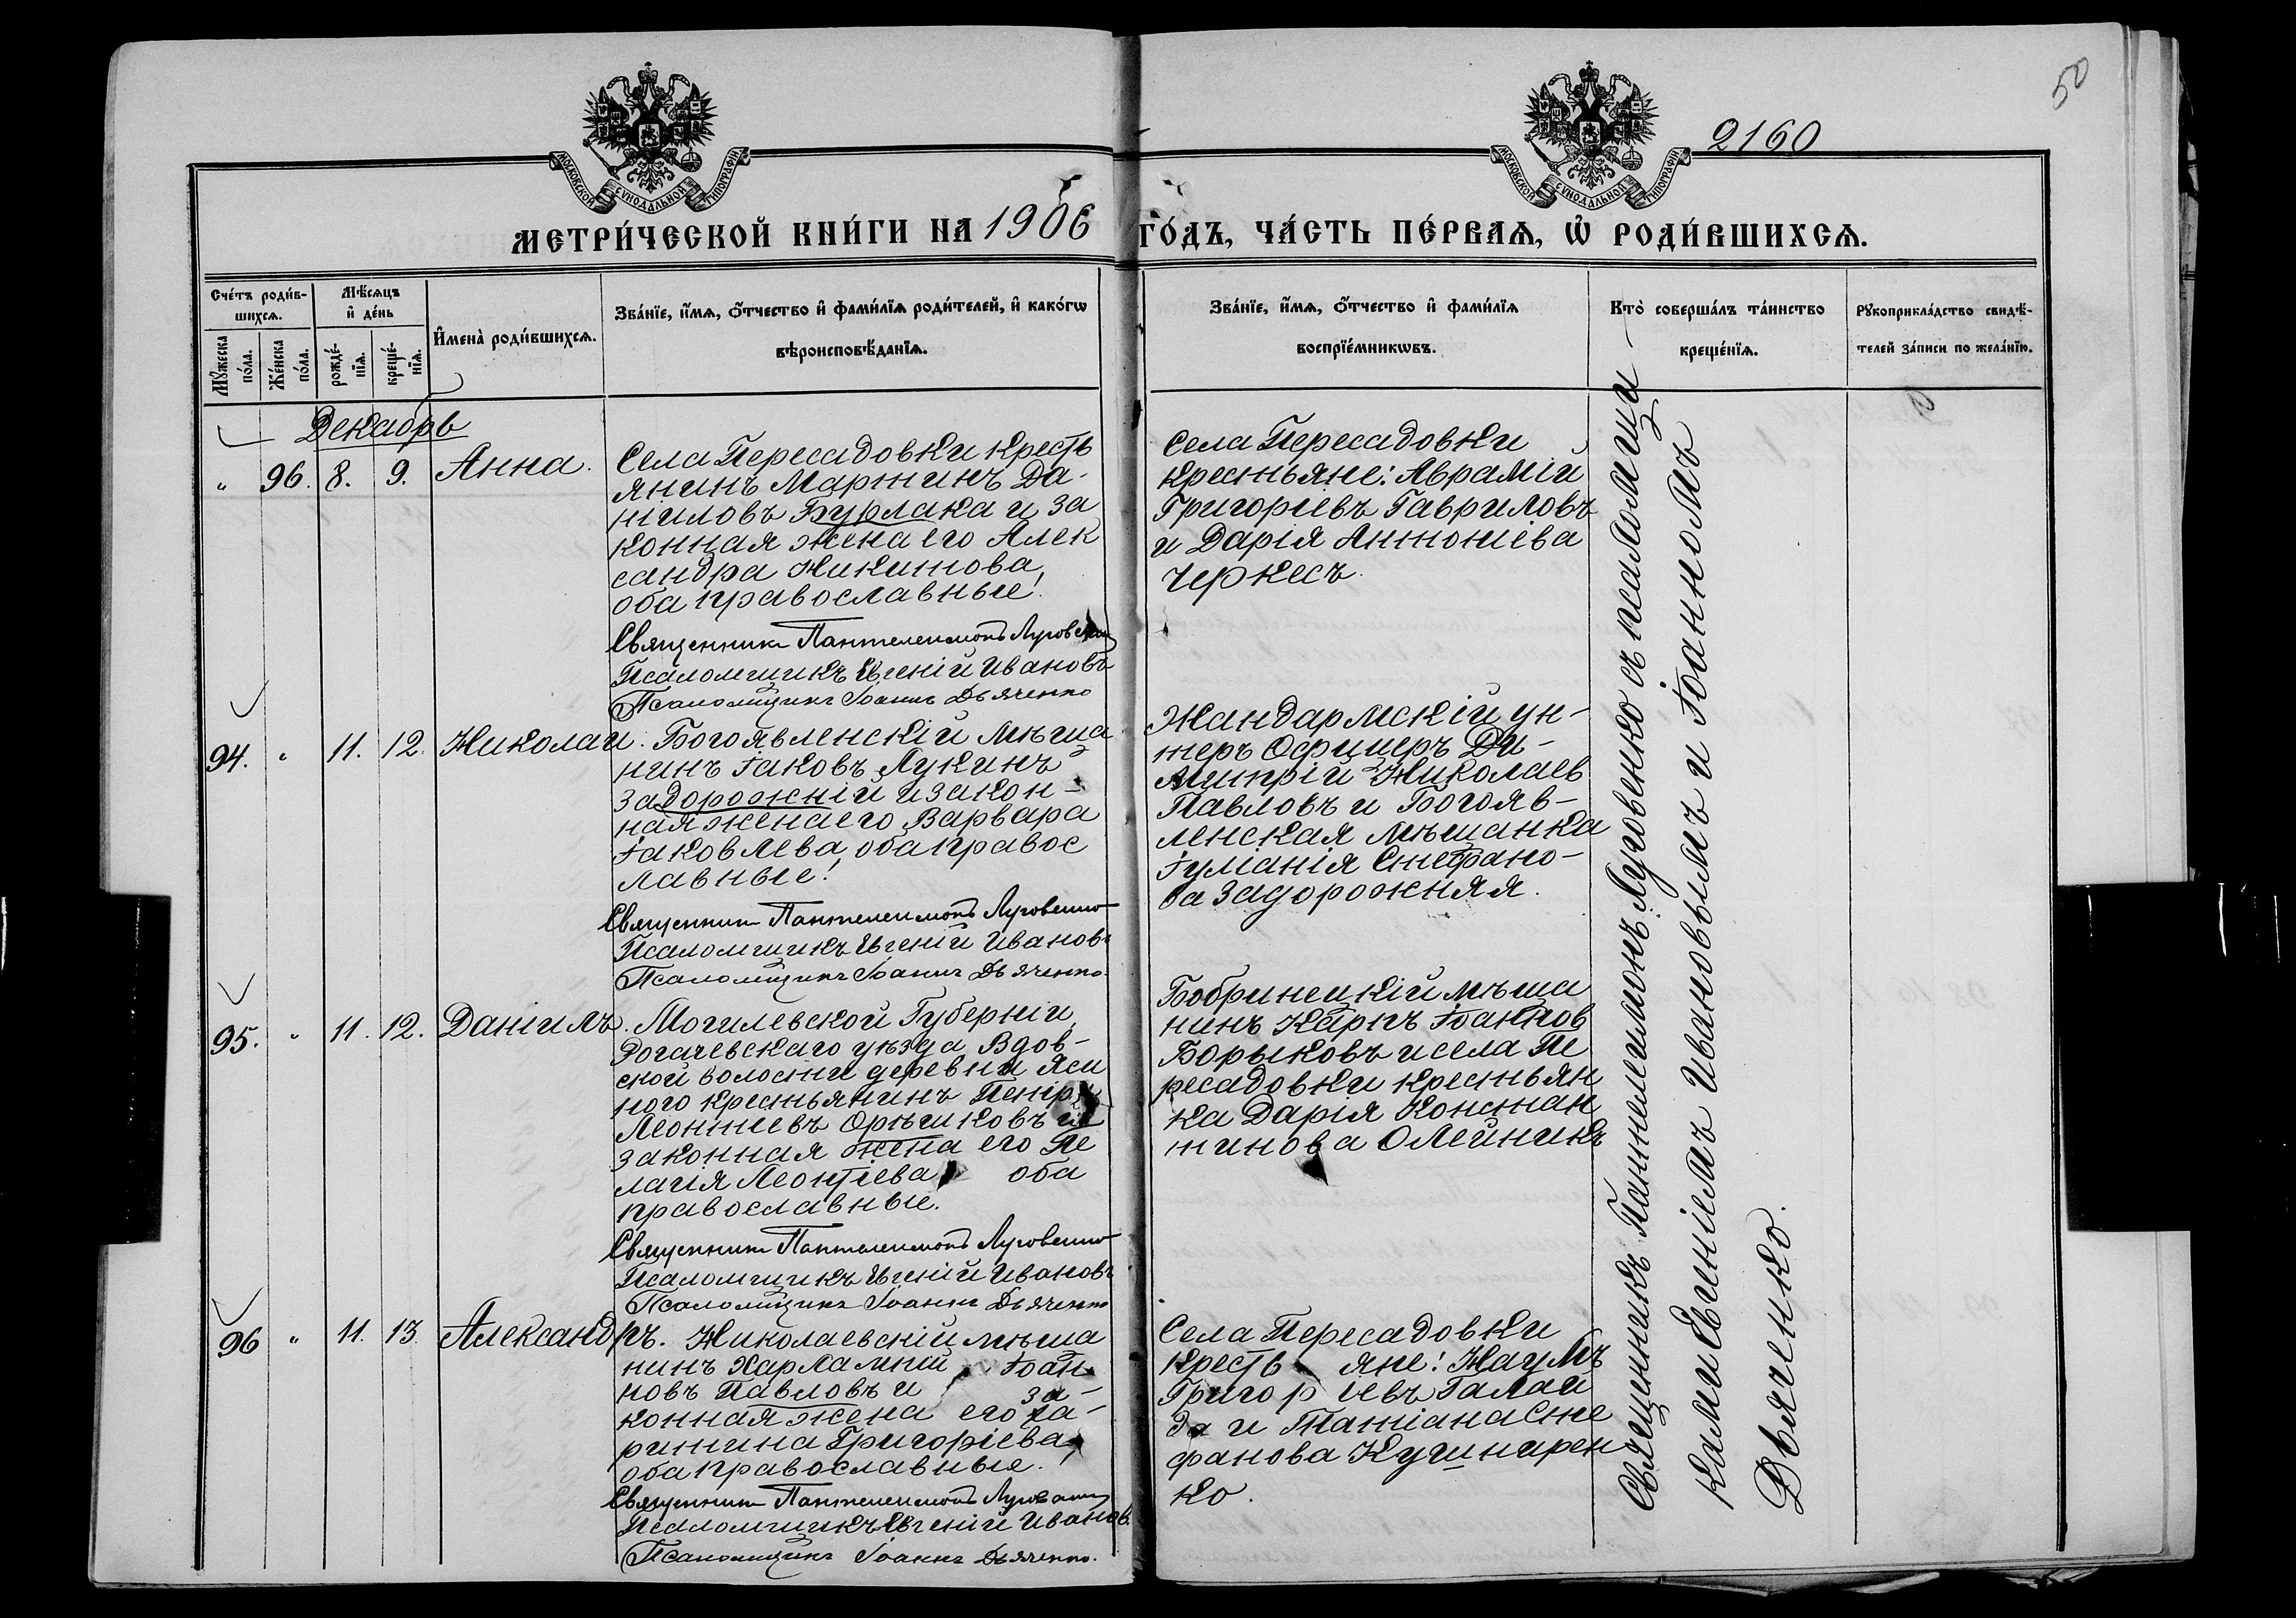 50
2160
МОСКОВСКОЙ СѴНОДАЛЬНОЙ ТИПОГРАФІИ
МОСКОВСКОЙ СѴНОДАЛЬНОЙ ТИПОГРАФІИ
МЕТРИ́ЧЕСКОЙ КНИ́ГИ НА 1906 ГО́ДЪ, ЧА́СТЬ ПЕ́РВАѦ, Ѡ҆ РОДИ́ВШИХСѦ.
Сче́тъ роди́в-
шихсѧ.
Мꙋ́жеска по́ла.
Же́нска по́ла.
Мѣ́сѧцъ и҆ де́нь
рожде́-нїѧ.
креще́-нїѧ.
И҆мена̀ роди́вшихсѧ.
Зва́нїе, и҆́мѧ, ѻ҆́тчество и҆ фами́лїѧ роди́телей, и҆ како́гѡ
вѣроисповѣ́данїѧ.
Зва́нїе, и҆́мѧ, ѻ҆́тчество и҆ фами́лїѧ
воспрїе́мникѡвъ.
Кто̀ соверша́лъ та́инство
креще́нїѧ.
Рꙋкоприкла́дство свидѣ́-
телей за́писи по жела́нїю.
Декабрь
" 96. 8. 9. Анна.
Села Пересадовки кресть
янинъ Мартинъ Да-
ниловъ Бурлака и за
конная жена его Алек
сандра Никитова,
оба православные.
Священникъ Пантелеимонъ Луговенко
Псаломщикъ Евгеній Ивановъ
Псаломщикъ Іоаннъ Дьяченко
Села Пересадовки
крестьяне: Аврамій
Григоріевъ Гавриловъ
и Дарія Антоніева
Черкесъ.
94. " 11. 12. Николай.
Богоявленскій мѣща
нинъ Іаковъ Лукинъ
Задорожній и закон-
ная жена его Варвара
Іаковлева, оба правос
лавные.
Священникъ Пантелеимонъ Луговенко
Псаломщикъ Евгеній Ивановъ
Псаломщикъ Іоаннъ Дьяченко.
Жандармскій ун-
теръ Офицеръ Ди-
митрій Николаев
Павловъ и Богояв-
ленская мѣщанка
Іуліанія Стефано-
ва Задорожняя.
95. " 11. 12. Даніилъ.
Могилевской Губерніи,
Рогачевскаго уѣзда Вдов-
ской волости деревни Яси
ного крестьянинъ Петръ
Леонтіевъ Орѣшковъ и
законная жена его Пе
лагія Леонтіева оба
православные.
Священникъ Пантелеимонъ Луговенко
Псаломщикъ Евгеній Ивановъ
Псаломщикъ Іоаннъ Дьяченко
Бобринецкій мѣща
нинъ Карпъ Іоаннов
Борыковъ и села Пе
ресадовки крестьян
ка Дарія Констан
тинова Олейникъ
96 " 11. 13. Александръ.
Николаевскій мѣща
нинъ Харлампій Іоан
новъ Павловъ и за-
конная жена его
Григоріева,
оба православные.
Священникъ Пантелеимонъ Луговенко
Псаломщикъ Евгеній Иванов.
Псаломщикъ Іоаннъ Дьяченко.
Села Пересадовки
кресть яне: Наумъ
Григор іевъ Галай
да и Татіана Сте
фанова Кушнирен
ко.
Священникъ Пантелеимонъ Луговенко съ псаломщи-
ками Евгеніемъ Ивановымъ и Іоанномъ
Дьяченко.